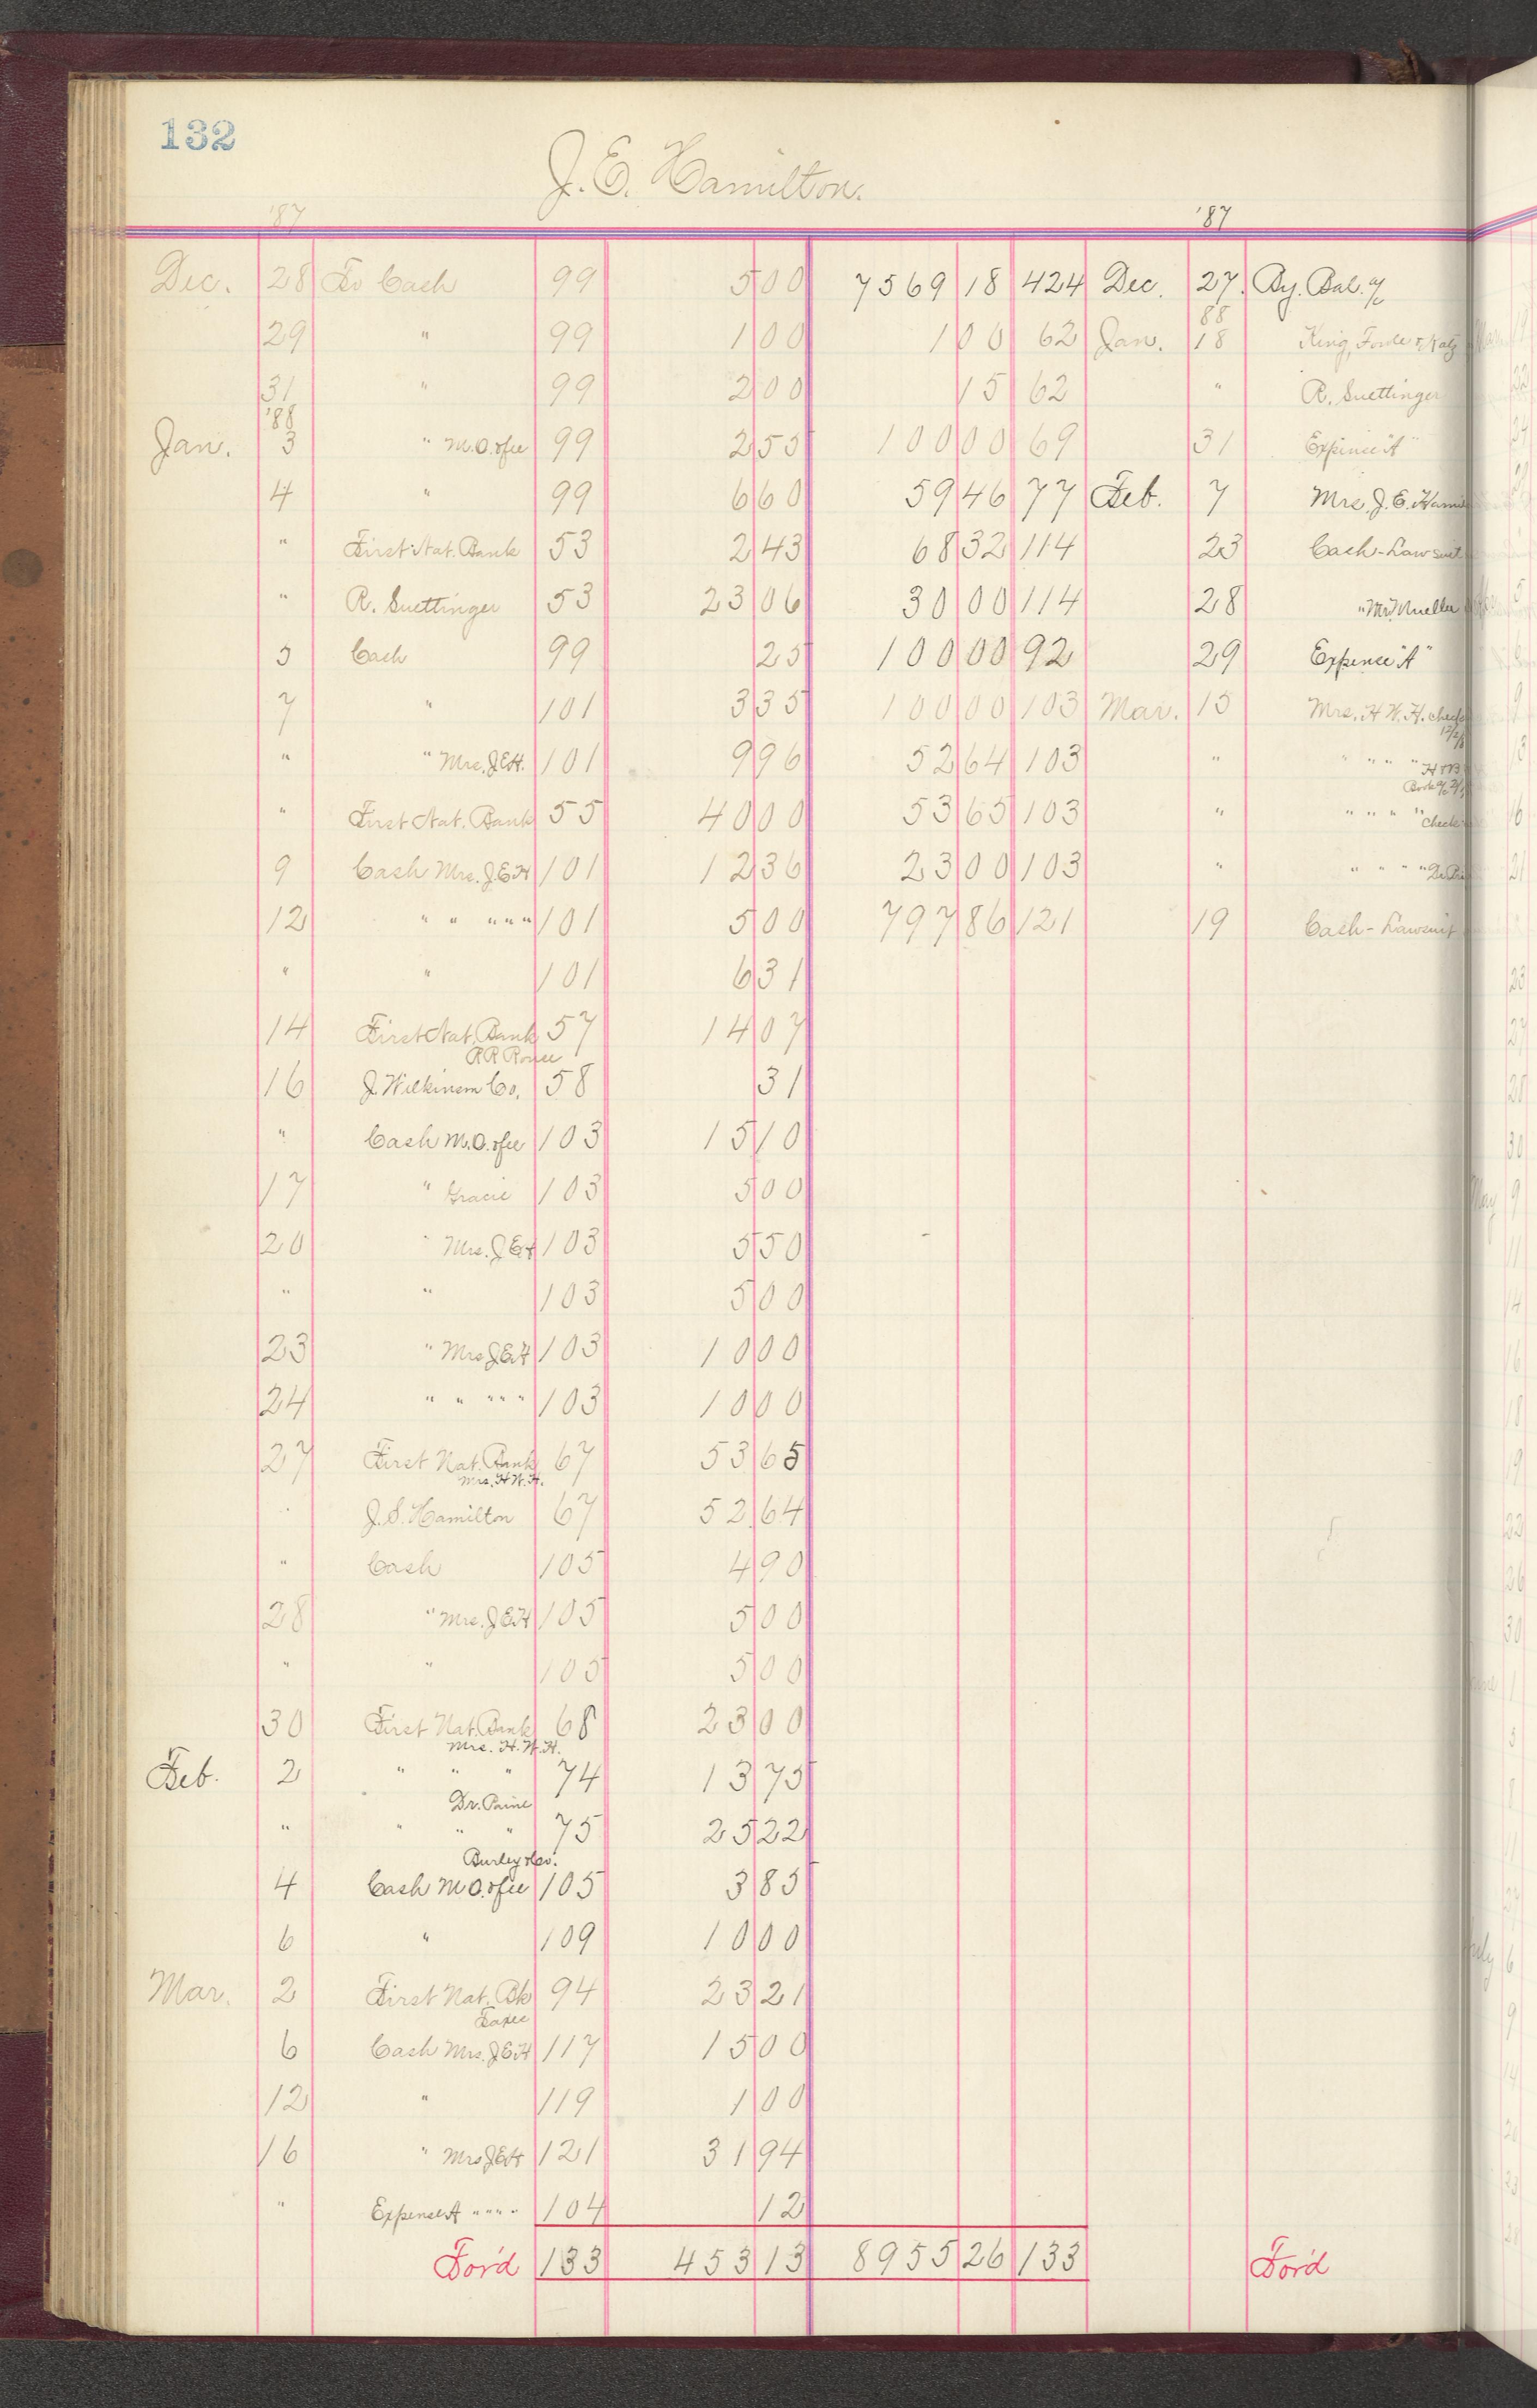 132
J. E. Hamilton.
'87 '87
Dec. 28 To Cash 99 5 00 7569 18 424 Dec. 27. By. Bal. a/c
29 " 99 1 00 1 00 62 Jan. 88 18 King, Fowle & Katz
31 " 99 2 00 15 62 " R. Suettinger
Jan. '88 3 " M.O. & fee 99 2 55 100 00 69 31 Expense "A"
4 " 99 6 60 59 46 77 Feb. 7 Mrs. J. E. Hamil
" First Nat. Bank 53 2 43 68 32 114 23 Cash - Lawsuit
" R. Suettinger 53 23 06 30 00 114 28 " Mueller
5 Cash 99 25 100 00 92 29 Expense "A"
7 " 101 3 35 100 00 103 Mar. 15 Mrs. H. W. H. check
" " Mrs. J.E.H. 101 9 96 52 64 103 " " " " "
" First Nat. Bank 55 40 00 53 65 103 " " " " " Check
9 Cash Mrs. J.E.H 101 12 36 23 00 103 " " " " "
12 " " " " " 101 5 00 797 86 121 19 Cash - Lawsuit
" " 101 6 31
14 First Nat. Bank 57 14 07
16 J. Wilkinson Co. 58 31
" Cash M.O. & fee 103 15 10
17 " Gracie 103 5 00
20 " Mrs. J E H 103 5 50
" " 103 5 00
23 " Mrs J.E.H 103 10 00
24 " " " " " 103 10 00
27 First Nat. Bank 67 53 65
Mrs. H. W. H.
" J. S. Hamilton 67 52 64
" Cash 105 4 90
28 " Mrs. J E H 105 5 00
" " 105 5 00
30 First Nat. Bank 68 23 00
Mrs. H. W. H.
Feb. 2 " " " 74 13 75
Dr. Paine
" " " " 75 25 22
Burley & Co.
4 Cash M O. & fee 105 3 85
6 " 109 10 00
Mar. 2 First Nat. Bk 94 23 21
Taxes
6 Cash Mrs. J E H 117 15 00
12 " 119 1 00
16 " Mrs J E H 121 31 94
" Expense A " " " " 104 12
For'd 133 453 13 8955 26 133 For'd